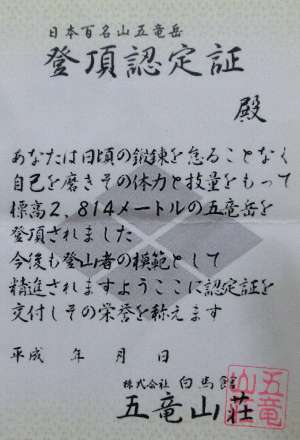 日本百名山五竜岳
登頂認定証
殿
あなたは日頃の鍛錬を怠ることなく
自己を磨きその体力と技量をもって
標高2,814メートルの五竜岳を
登頂されました
今後も登山者の模範として
精進されますようここに認定証を
交付しその栄誉を称えます
平成 年 月 日
株式会社 白馬館
五竜山荘
五竜
山荘